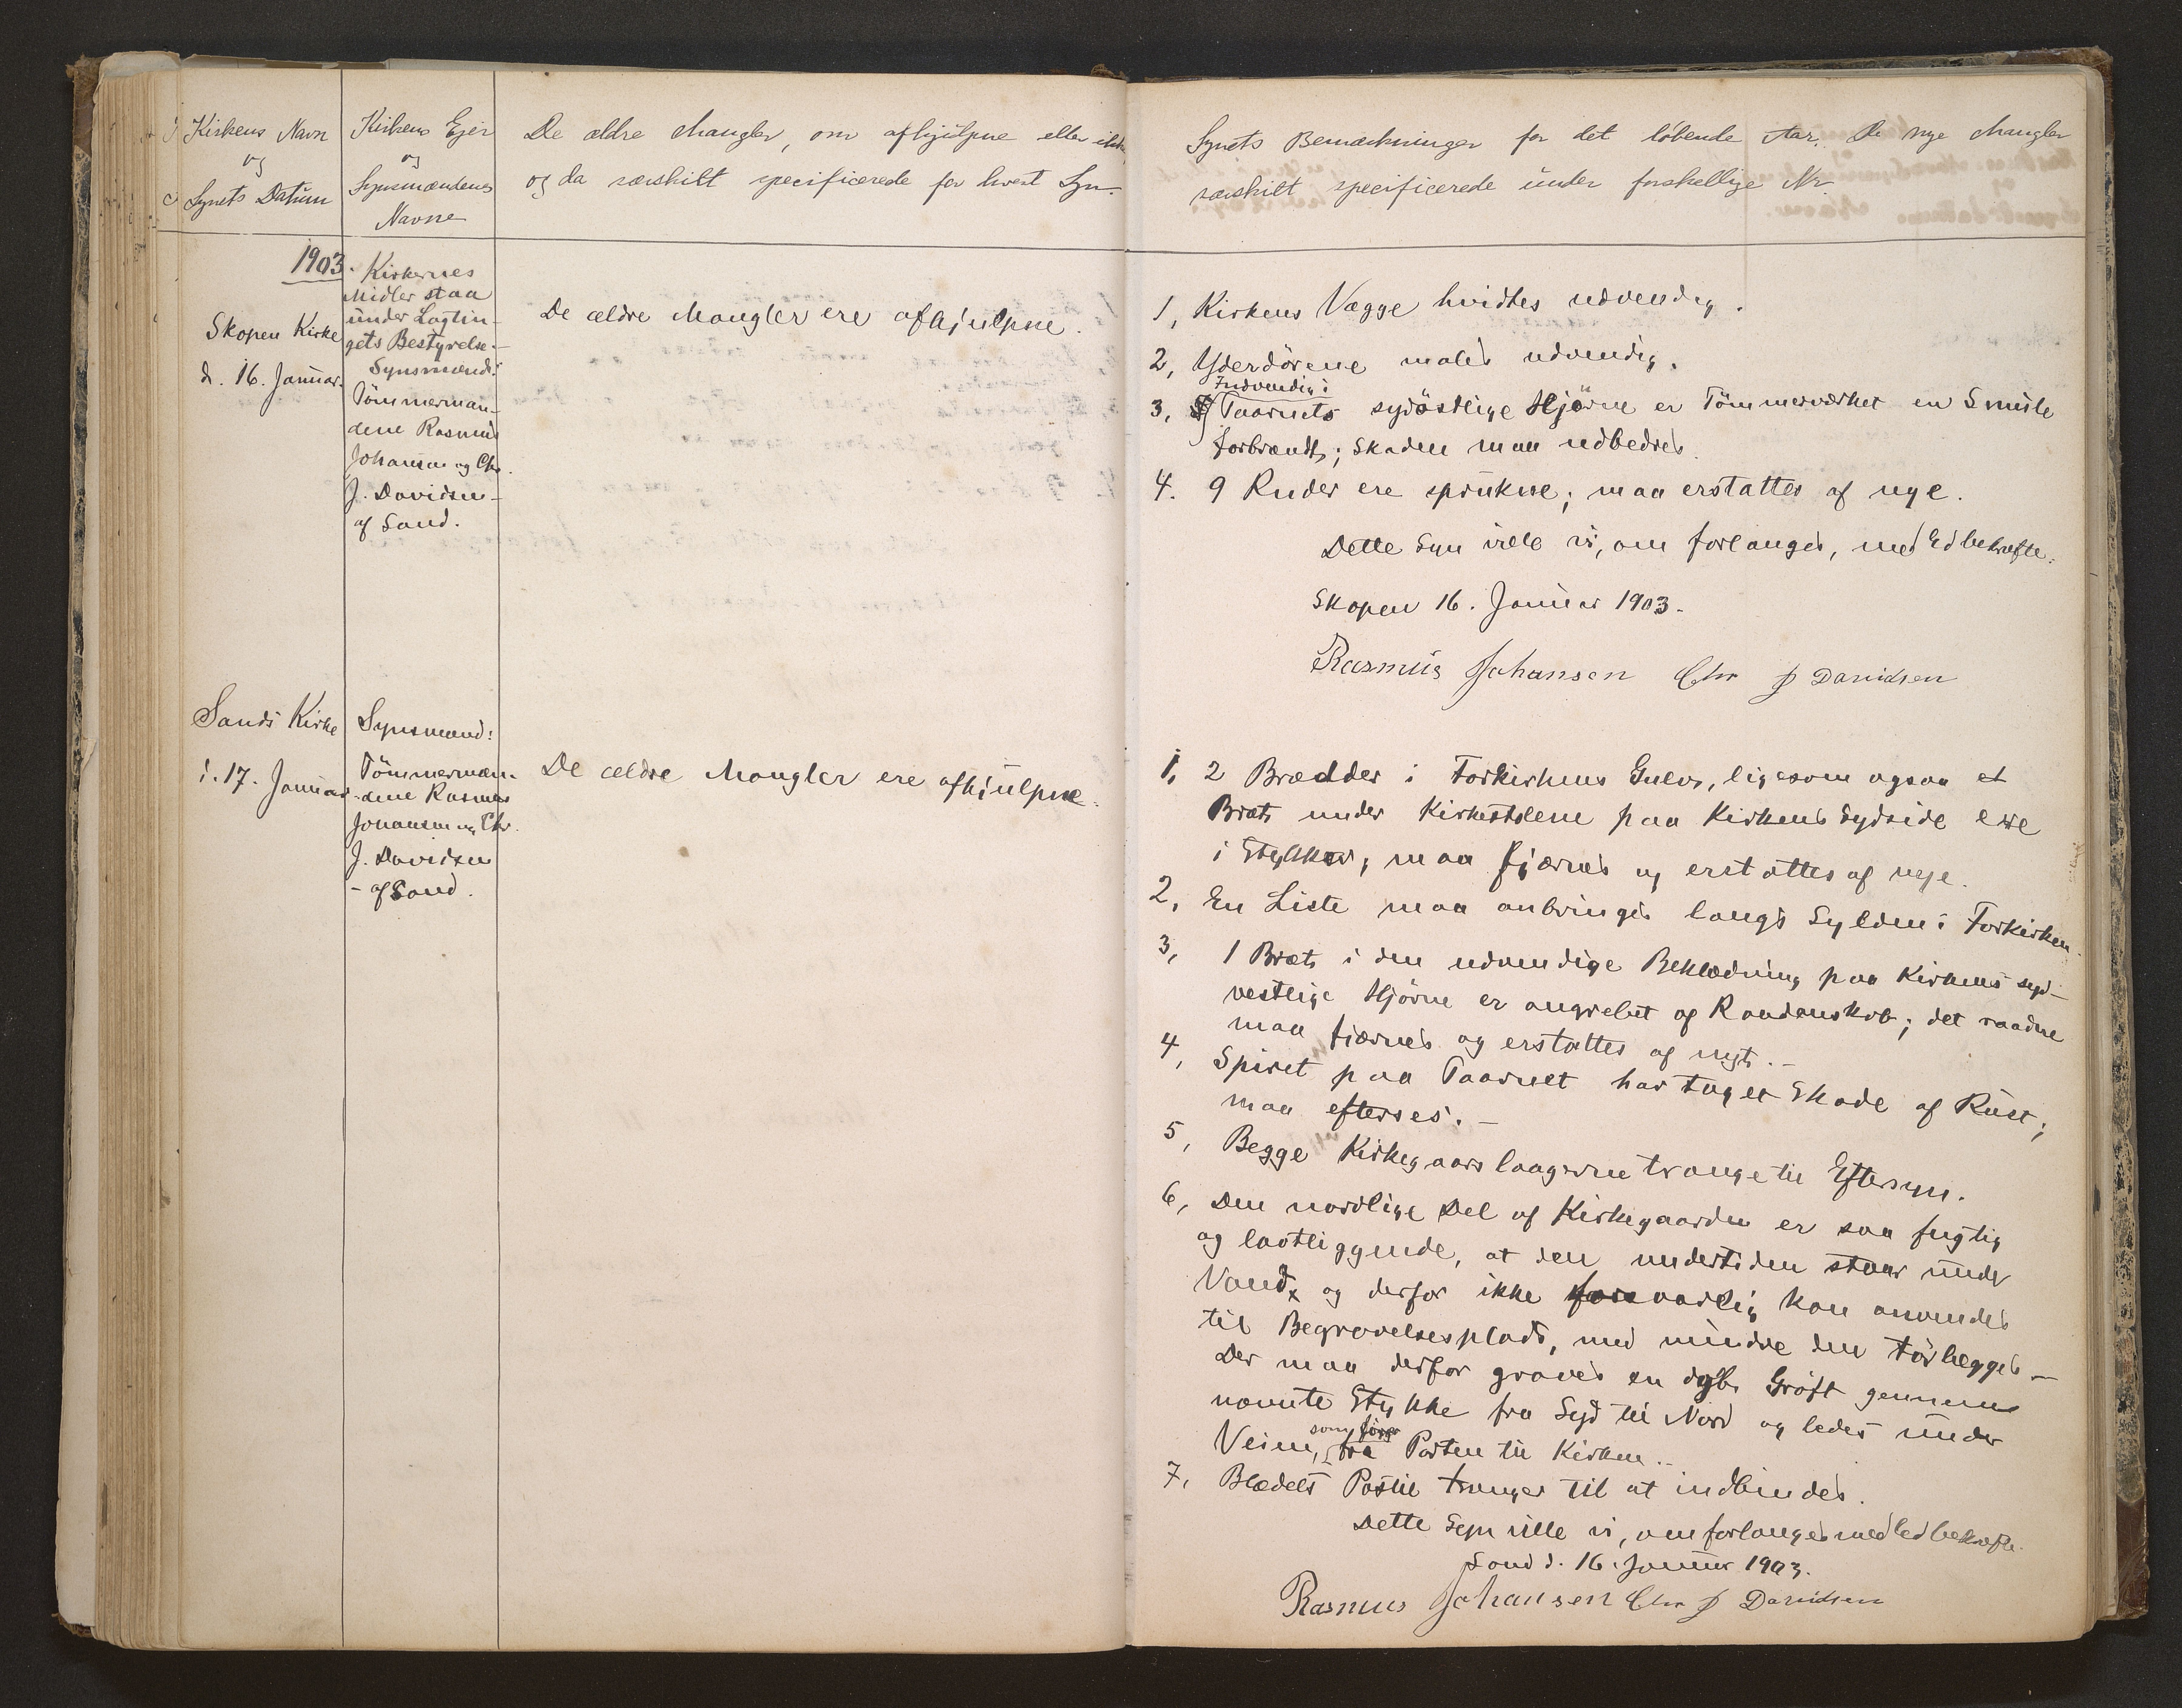 Kirkens Navn
og
Synets Datum
Kirkens Ejer
og
Synsmændenes
Navne
De ældre Mangler, om afhjülpne eller ikke,
og da særskilt specificerede for hvert Syn.
1903.
Skopen Kirke
d. 16. Januar.
Kirkernes
Midler staa
under Lagtin-
gets Bestyrelse.-
Synsmænd:
Tömmermæn-
dene Rasmus
Johansen og Chr.
J. Davidsen -
af Sand.
De ældre Mangler ere afhjulpne.
Sands Kirke
d. 17. Januar
Synsmænd:
Tömmermæn-
dene Rasmus
Johansen og Chr.
J. Davidsen
- af Sand.
De ældre Mangler ere afhjulpne.
Synets Bemærkninger for det löbende Aar. De nye Mangler
særskilt specificerede under forskellige Nr.
1, Kirkens Vægge hvidtes udvendig.
2, Yderdörene males udvendig.
Indvendig i
3, Taarnets sydöstlige Hjörne er Tömmerværket en Smule
forbrændt; Skaden maa udbedres.
4. 9 Ruder ere sprukne; maa erstattes af nye.
Dette Syn ville vi, om forlanges, med Ed bekræfte.
Skopen 16. Januar 1903.
Rasmus Johansen Chr J Davidsen
1, 2 Brædder i Forkirkens Gulv, ligesom ogsaa et
Bræt under Kirkestolene paa Kirkens Sydside ere
i Stykker, maa fjærnes og erstattes af nye.
2, En Liste maa anbringes langs Sylden i Forkirken.
3, 1 Bræt i den udvendige Beklædning paa Kirkens syd-
vestlige Hjörne er angrebet af Raadenskab; det raadne
maa fjærnes og erstattes af nyt. -
4, Spiret paa Taarnet har taget Skade af Rust;
maa efterses. -
5, Begge Kirkegaardslaagerne trænge til Eftersyn.
6, Den nordlige Del af Kirkegaarden er saa fugtig
og lavtliggende, at den undertiden staar under
Vand, og derfor ikke forsvarlig kan anvendes
til Begravelsesplads, med mindre den törlægges -
Der maa derfor graves en dyb Gröft gennem
nævnte Stykke fra Syd til Nord og ledes under
som förer
Veien, fra Porten til Kirken. -
7, Blædels Postil trænger til at indbindes.
Dette Syn ville vi, om forlanges med Ed bekræfte.
Sand d. 16. Januar 1903.
Rasmus Johansen Chr J Davidsen